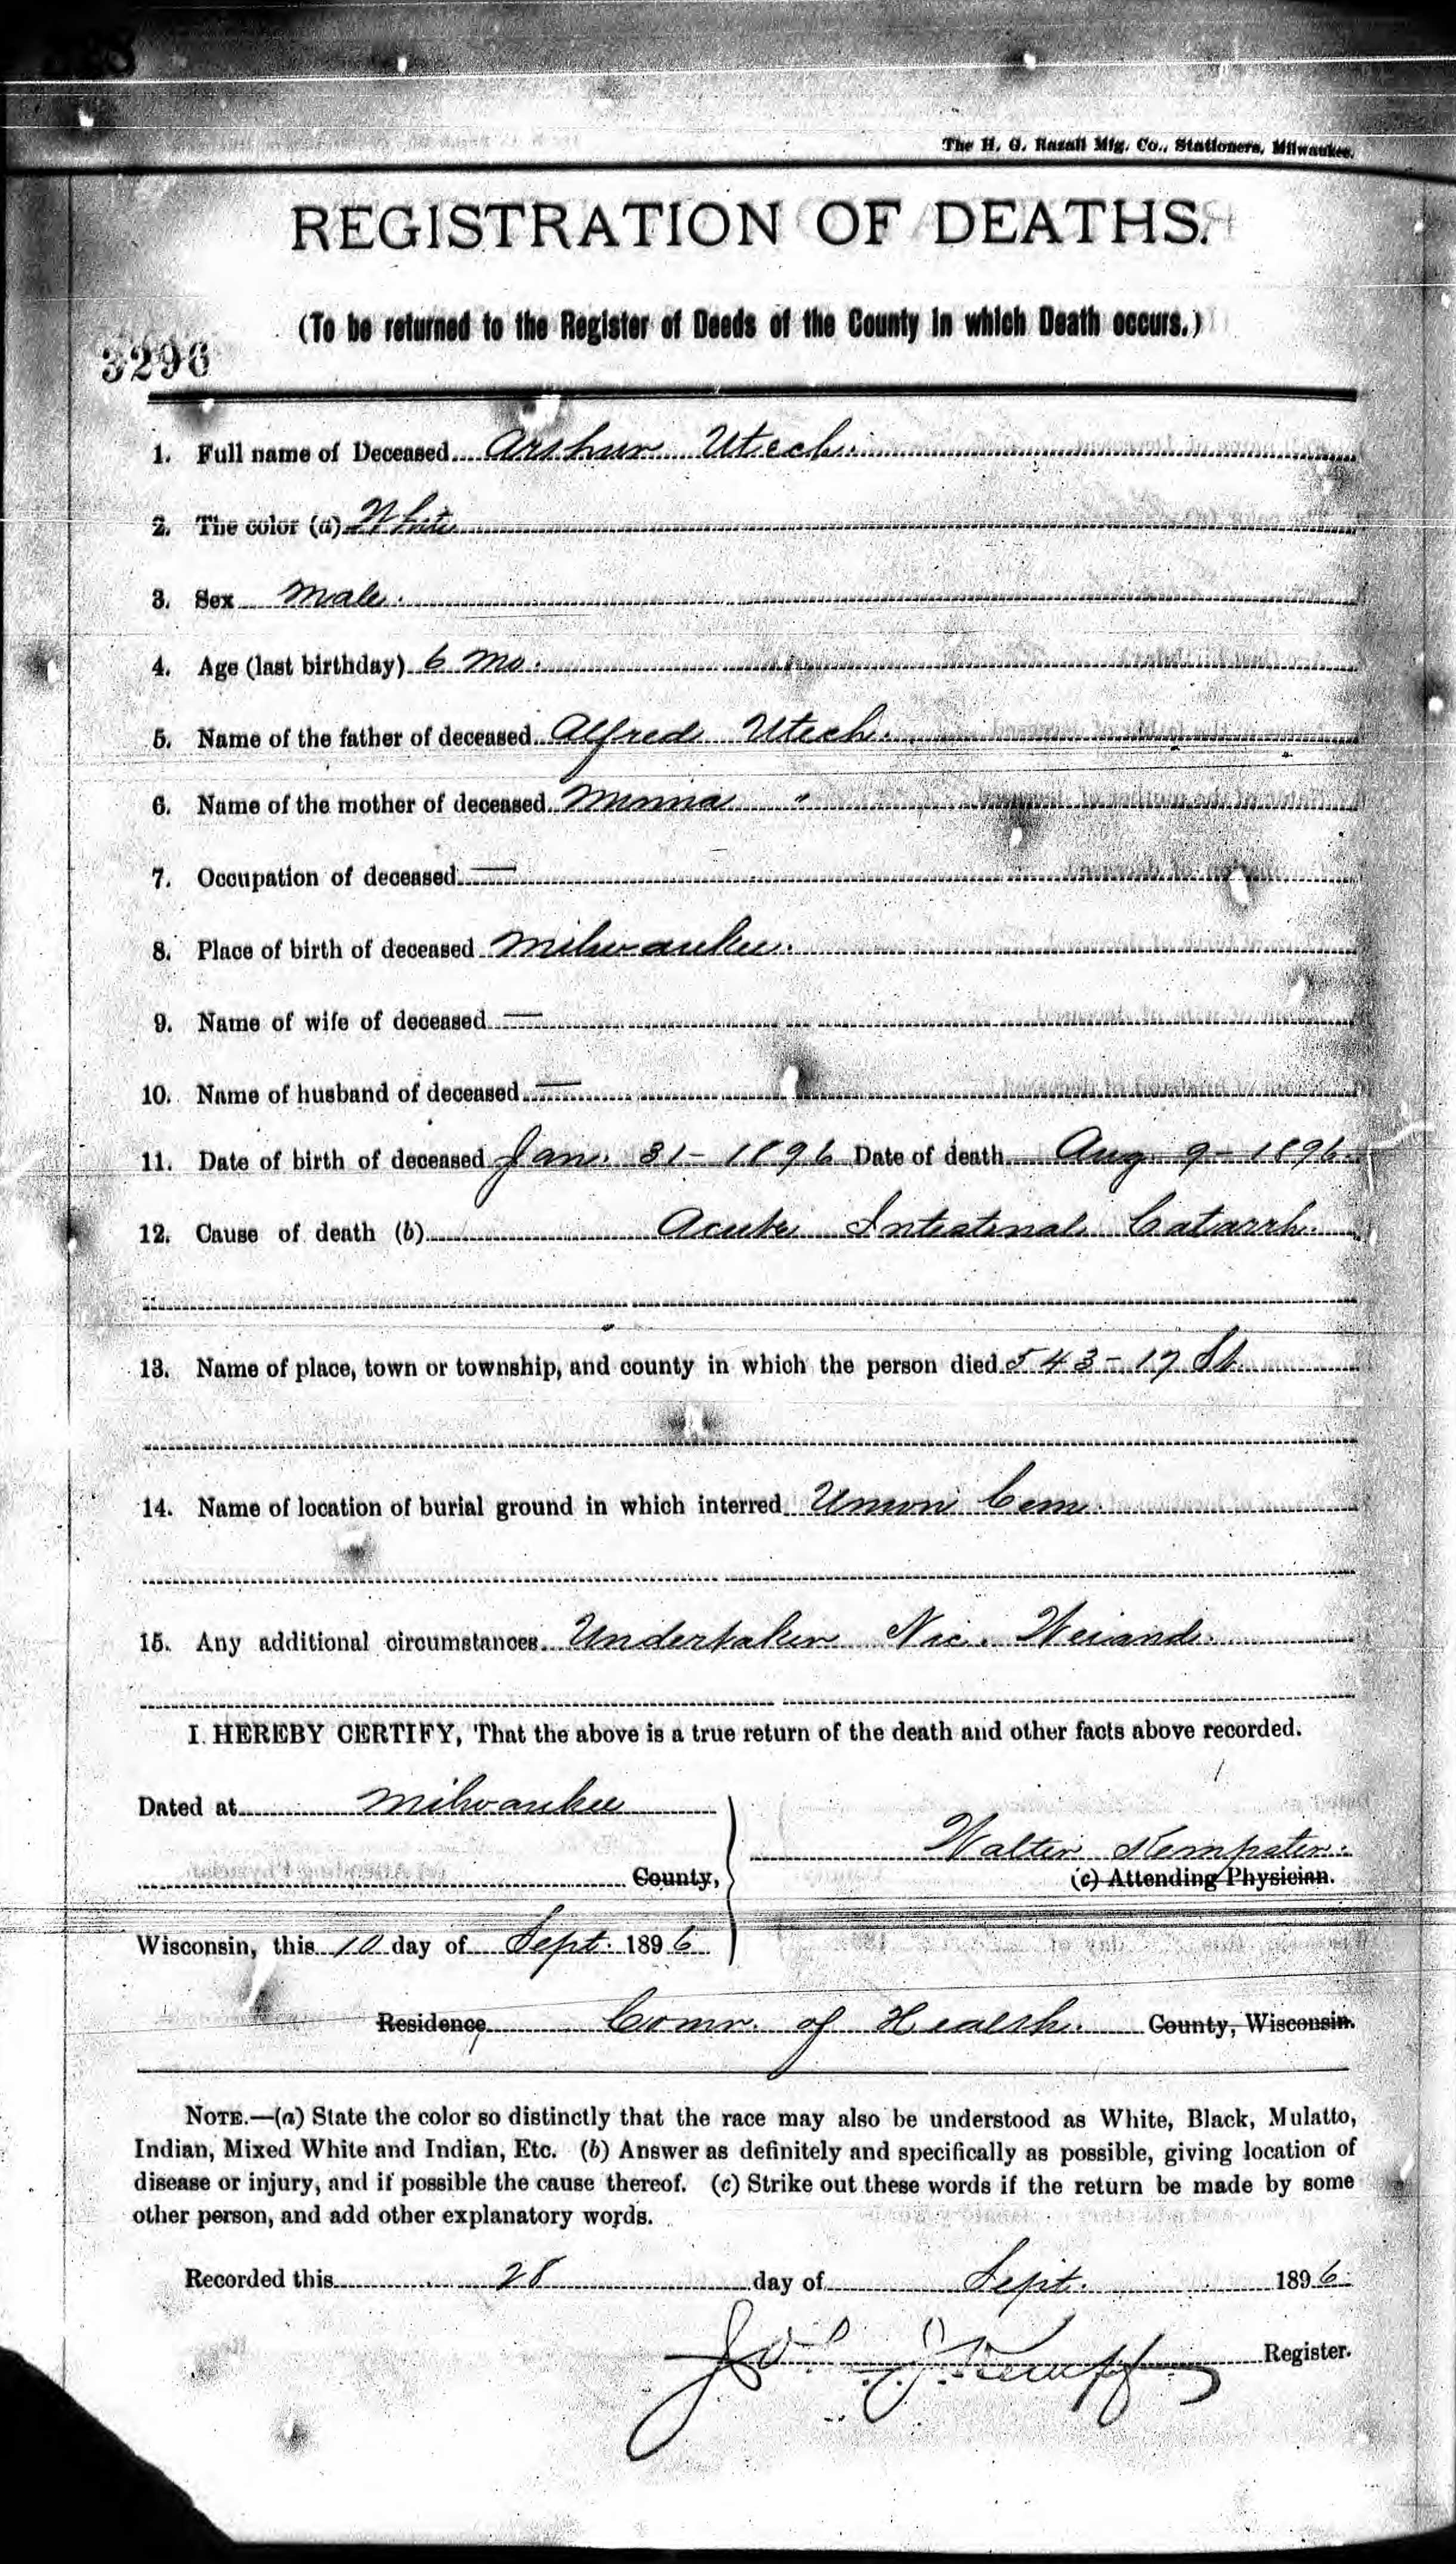 The H. G. Razall Mfg. Co., Stationers, Milwaukee.
REGISTRATION OF DEATHS.
(To be returned to the Register of Deeds of the County in which Death occurs.)
3296
1. Full name of Deceased Arthur Utech.
2. The color (a) White
3. Sex Male.
4. Age (last birthday) 6 Mo.
5. Name of the father of deceased Alfred Utech.
6. Name of the mother of deceased Minna "
7. Occupation of deceased —
8. Place of birth of deceased Milwaukee.
9. Name of wife of deceased —
10. Name of husband of deceased —
11. Date of birth of deceased Jan. 31 - 1896 Date of death Aug 9 - 1896.
12. Cause of death (b) Acute Intestinal Catarrh.
13. Name of place, town or township, and county in which the person died 543 - 17 St.
14. Name of location of burial ground in which interred Union Cem.
15. Any additional circumstances Undertaker Nic. Weiand.
I HEREBY CERTIFY, That the above is a true return of the death and other facts above recorded.
Dated at Milwaukee
Walter Kempster.
County,
(c) Attending Physician.
Wisconsin, this 10 day of Sept. 1896
Residence Comr. of Health. County, Wisconsin.
NOTE.—(a) State the color so distinctly that the race may also be understood as White, Black, Mulatto,
Indian, Mixed White and Indian, Etc. (b) Answer as definitely and specifically as possible, giving location of
disease or injury, and if possible the cause thereof. (c) Strike out these words if the return be made by some
other person, and add other explanatory words.
Recorded this 28 day of Sept. 1896
Register.